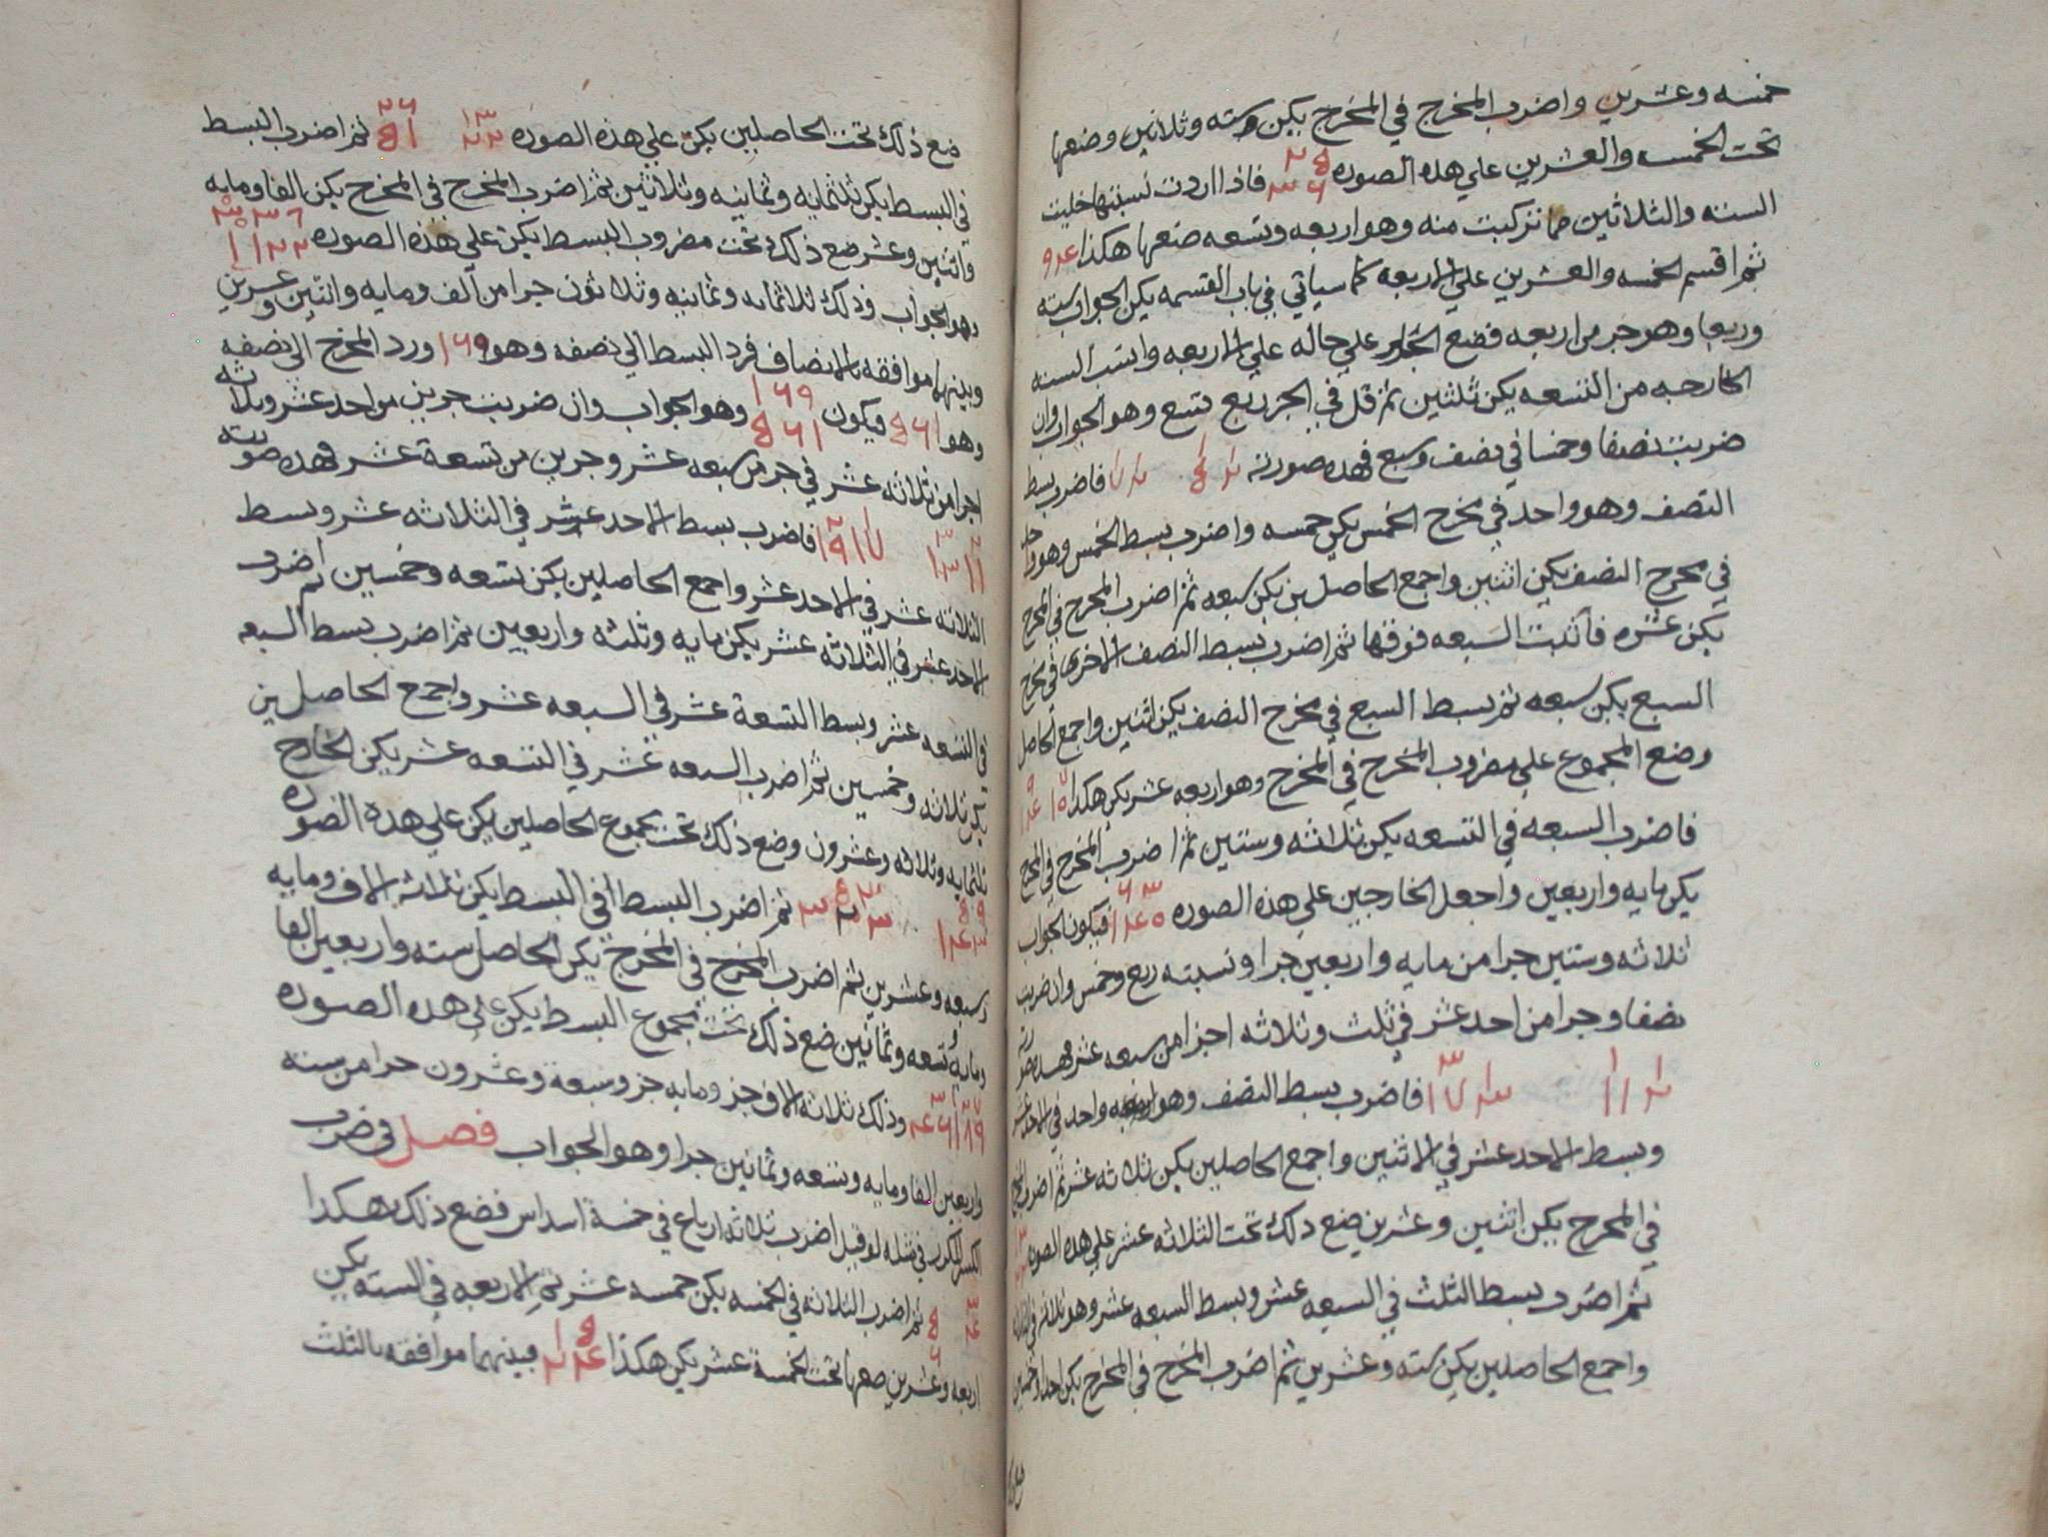 خمسه وعشرين واضرب المخرج في المخرج يكن سته وثلاثين وضعها
تحت الخمسه والعشرين علي هذه الصوره ٢٥ ٣٦ فاذا اردت نسبتها خليت
السته والثلاثين مما تركبت منه وهو اربعه وتسعه ضعها هكذا ٤ ٩
ثم اقسم الخمسه والعشرين علي الاربعه كما سياتي في باب القسمه يكن الجواب سته
وربعا وهو جز من اربعه فضع الجز علي حاله علي الاربعه وانسب السته
الخارجه من التسعه يكن ثلثين ثم قل في الجز ربع تسع وهو الجواب وان
ضربت نصفا وخمسا في نصف وسبع فهذه صورته فاضرب بسط
النصف وهو واحد في مخرج الخمس يكن خمسه واضرب بسط الخمس وهو واحد
في مخرج النصف يكن اثنين واجمع الحاصلين يكن سبعه ثم اضرب المخرج في المخرج
يكن عشره فاثبت السبعه فوقها ثم اضرب بسط النصف الاخرى في مخرج
السبع يكن سبعه ثم بسط السبع في مخرج النصف يكن اثنين واجمع الحاصل
وضع المجموع علي مضروب المخرج في المخرج وهو اربعه عشر يكن هكذا ٧ ١٠ ٩ ١٤
فاضرب السبعه في التسعه يكن ثلاثه وستين ثم اضرب المخرج في المخرج
يكن مايه واربعين واجعل الخارجين علي هذه الصوره ٦٣ ١٤٠ فيكون الجواب
ثلاثه وستين جزا من مايه واربعين جزا ونسبته ربع وخمس وان ضربت
نصفا وجزا من احد عشر في ثلث وثلاثه اجزا من سبعه عشر فهذه صورته
فاضرب بسط النصف وهو واحد في الاحد عشر
وبسط الاحد عشر في الاثنين واجمع الحاصلين يكن ثلاثه عشر ثم اضرب المخرج
في المخرج يكن اثنين وعشرين ضع ذلك تحت الثلاثه عشر علي هذه الصوره
ثم اضرب بسط الثلث في السبعه عشر وبسط السبعه عشر وهو ثلاثه في الثلاثه
واجمع الحاصلين يكن سته وعشرين ثم اضرب المخرج في المخرج يكن احدا وخمسين
ضع ذلك تحت الحاصلين يكن علي هذه الصوره ١٣ ٢٢ ٢٦ ٥١ ثم اضرب البسط
في البسط يكن ثلثمايه وثمانيه وثلاثين ثم اضرب المخرج في المخرج يكن الفا ومايه
واثنين وعشر ضع ذلك تحت مضروب البسط يكن علي هذه الصوره ٣٣٨ ١١٢٢
وهو الجواب وذلك ثلاثمايه وثمانيه وثلاثون جزا من الف ومايه واثنين وعشرين
وبينهما موافقه بالانصاف فرد البسط الي نصفه وهو ١٦٩ ورد المخرج الي نصفه
وهو ٥٦١ فيكون ١٦٩ ٥٦١ وهو الجواب وان ضربت جزين من احد عشر وثلاثه
اجزا من ثلاثه عشر في جز من سبعه عشر وجزين من تسعة عشر فهذه صورته
فاضرب بسط الاحد عشر في الثلاثه عشر وبسط
الثلاثه عشر في الاحد عشر واجمع الحاصلين يكن تسعه وخمسين ثم اضرب
الاحد عشر في الثلاثه عشر يكن مايه وثلثه واربعين ثم اضرب بسط السبعه
في التسعه عشر وبسط التسعة عشر في السبعه عشر واجمع الحاصلين
يكن ثلاثه وخمسين ثم اضرب السبعه عشر في التسعه عشر يكن الخارج
ثلثمايه وثلاثه وعشرون وضع ذلك تحت مجموع الحاصلين يكن علي هذه الصوره
٥٩ ١٤٣ ٥٣ ٣٢٣ ثم اضرب البسط في البسط يكن ثلاثه الاف ومايه
وسبعه وعشرين ثم اضرب المخرج في المخرج يكن الحاصل سته واربعين الفا
ومايه وتسعه وثمانين ضع ذلك تحت مجموع البسط يكن علي هذه الصوره
٣١٢٧ ٤٦١٨٩ وذلك ثلاثه الاف جز ومايه جز وسبعة وعشرون جزا من سته
واربعين الفا ومايه وتسعه وثمانين جزا وهو الجواب فصل في ضرب
الكسر المكرر في مثله لو قيل اضرب ثلاثه ارباع في خمسة اسداس فضع ذلك هكذا
٣ ٤ ٥ ٦ ثم اضرب الثلاثه في الخمسه يكن خمسه عشر ثم الاربعه في السته يكن
اربعه وعشرين ضعها تحت الخمسة عشر يكن هكذا ١٥ ٢٤ فبينهما موافقه بالثلث